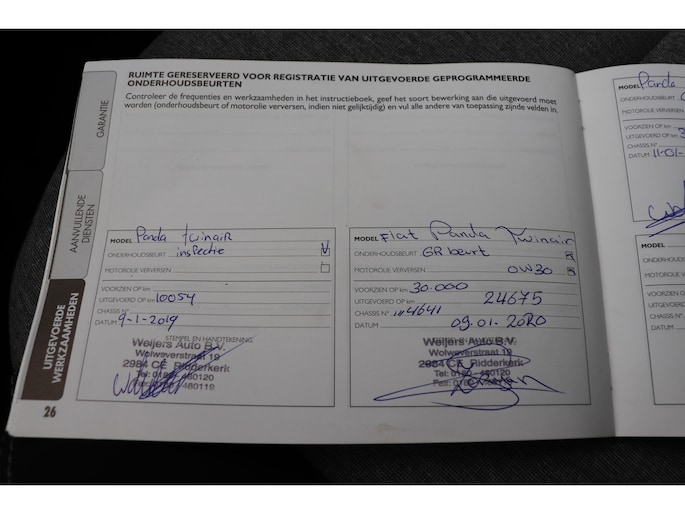 RUIMTE GERESERVEERD VOOR REGISTRATIE VAN UITGEVOERDE GEPROGRAMMEERDE
ONDERHOUDSBEURTEN
Controleer de frequenties en werkzaamheden in het instructieboek, geef het soort bewerking aan die uitgevoerd moet
worden (onderhoudsbeurt of motorolie verversen, indien niet gelijktijdig) en vul alle andere van toepassing zijnde velden in.
GARANTIE
AANVULLENDE
DIENSTEN
UITGEVOERDE
WERKZAAMHEDEN
MODEL Panda twinair
ONDERHOUDSBEURT inspectie
MOTOROLIE VERVERSEN
VOORZIEN OP km
UITGEVOERD OP km 10054
CHASSIS N°
DATUM 9-1-2019
STEMPEL EN HANDTEKENING
Weijers Auto B.V.
Wolweverstraat 19
2984 CE Ridderkerk
Tel: 0180 - 480120
480119
MODEL Fiat Panda Twinair
ONDERHOUDSBEURT GR beurt
MOTOROLIE VERVERSEN 0W30
VOORZIEN OP km 30.000
UITGEVOERD OP km 24675
CHASSIS N° 4641
DATUM 09.01.2020
Weijers Auto B.V.
Wolweverstraat 19
2984 CE Ridderkerk
Tel: 0180 - 480120
MODEL Panda
ONDERHOUDSBEURT
MOTOROLIE VERVERSEN
VOORZIEN OP km
UITGEVOERD OP km
CHASSIS N°
DATUM 11-01-
MODEL
ONDERHOUDSBEURT
MOTOROLIE VERVERSEN
VOORZIEN OP km
UITGEVOERD OP km
CHASSIS N°
DATUM
26